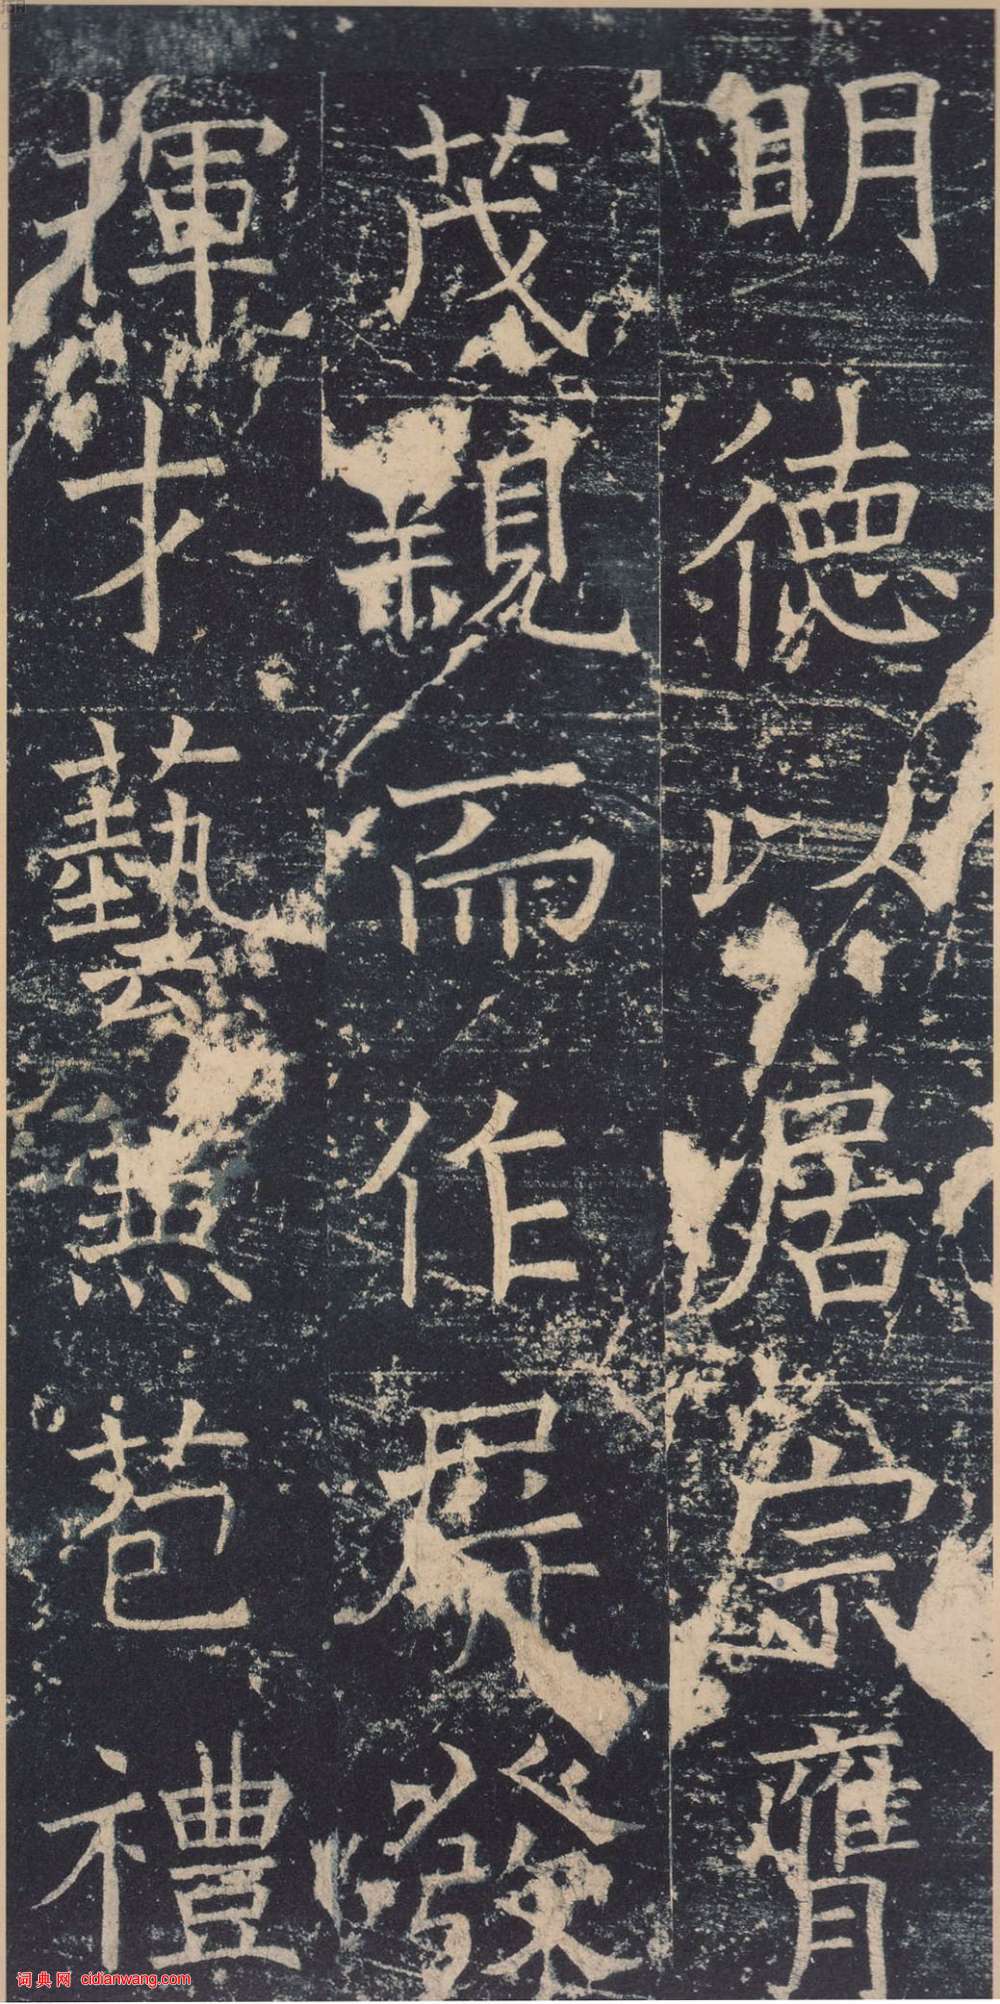 明德以居宗膺
茂親而作屏發
揮才藝兼苞禮
词典网 cidianwang.com